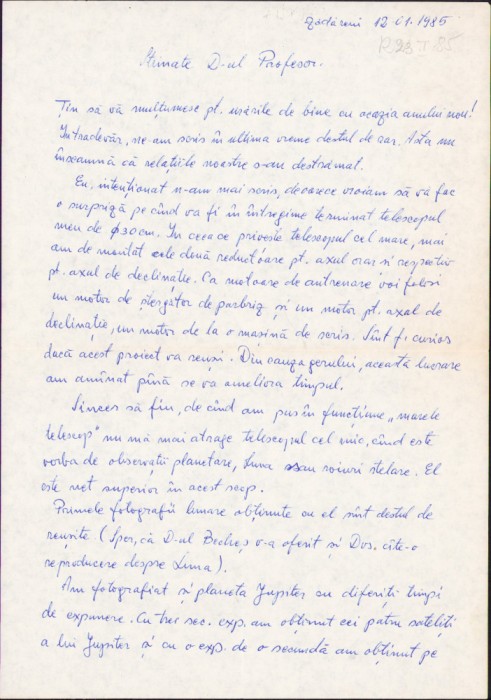 Zădăreni 12.01.1985
R 23 I 85
Stimate D-ul Profesor.
Țin să vă mulțumesc pt. urările de bine cu ocazia anului nou!
Întradevăr, ne-am scris în ultima vreme destul de rar. Asta nu
înseamnă că relațiile noastre s-au destrămat.
Eu, intenționat n-am mai scris, deoarece vroiam să vă fac
o surpriză pe cînd va fi în întregime terminat telescopul
meu de ϕ30cm. In ceea ce privește telescopul cel mare, mai
am de montat cele două reductoare pt. axul orar si respectiv
pt. axul de declinație. Ca motoare de antrenare voi folosi
un motor de ștergător de parbriz și un motor pt. axal de
declinație, un motor de la o masină de scris. Sînt f. curios
dacă acest proiect va reuși. Din cauza gerului, această lucrare
am amînat până se va ameliora timpul.
Sincer să fiu, de cînd am pus în funcțiune „marele
telescop" nu mă mai atrage telescopul cel mic, cînd este
vorba de observatii planetare, Luna sau roiuri stelare. El
este net superior în acest scop.
Primele fotografii lunare obținute cu el sînt destul de
reușite. (Sper, că D-ul v-a oferit și Dvs. cîte-o
reproducere despre Luna).
Am fotografiat și planeta Jupiter cu diferiți timpi
de expunere. Cu trei sec. exp. am obținut cei patru sateliți
a lui Jupiter și cu o exp. de o secundă am obținut pe